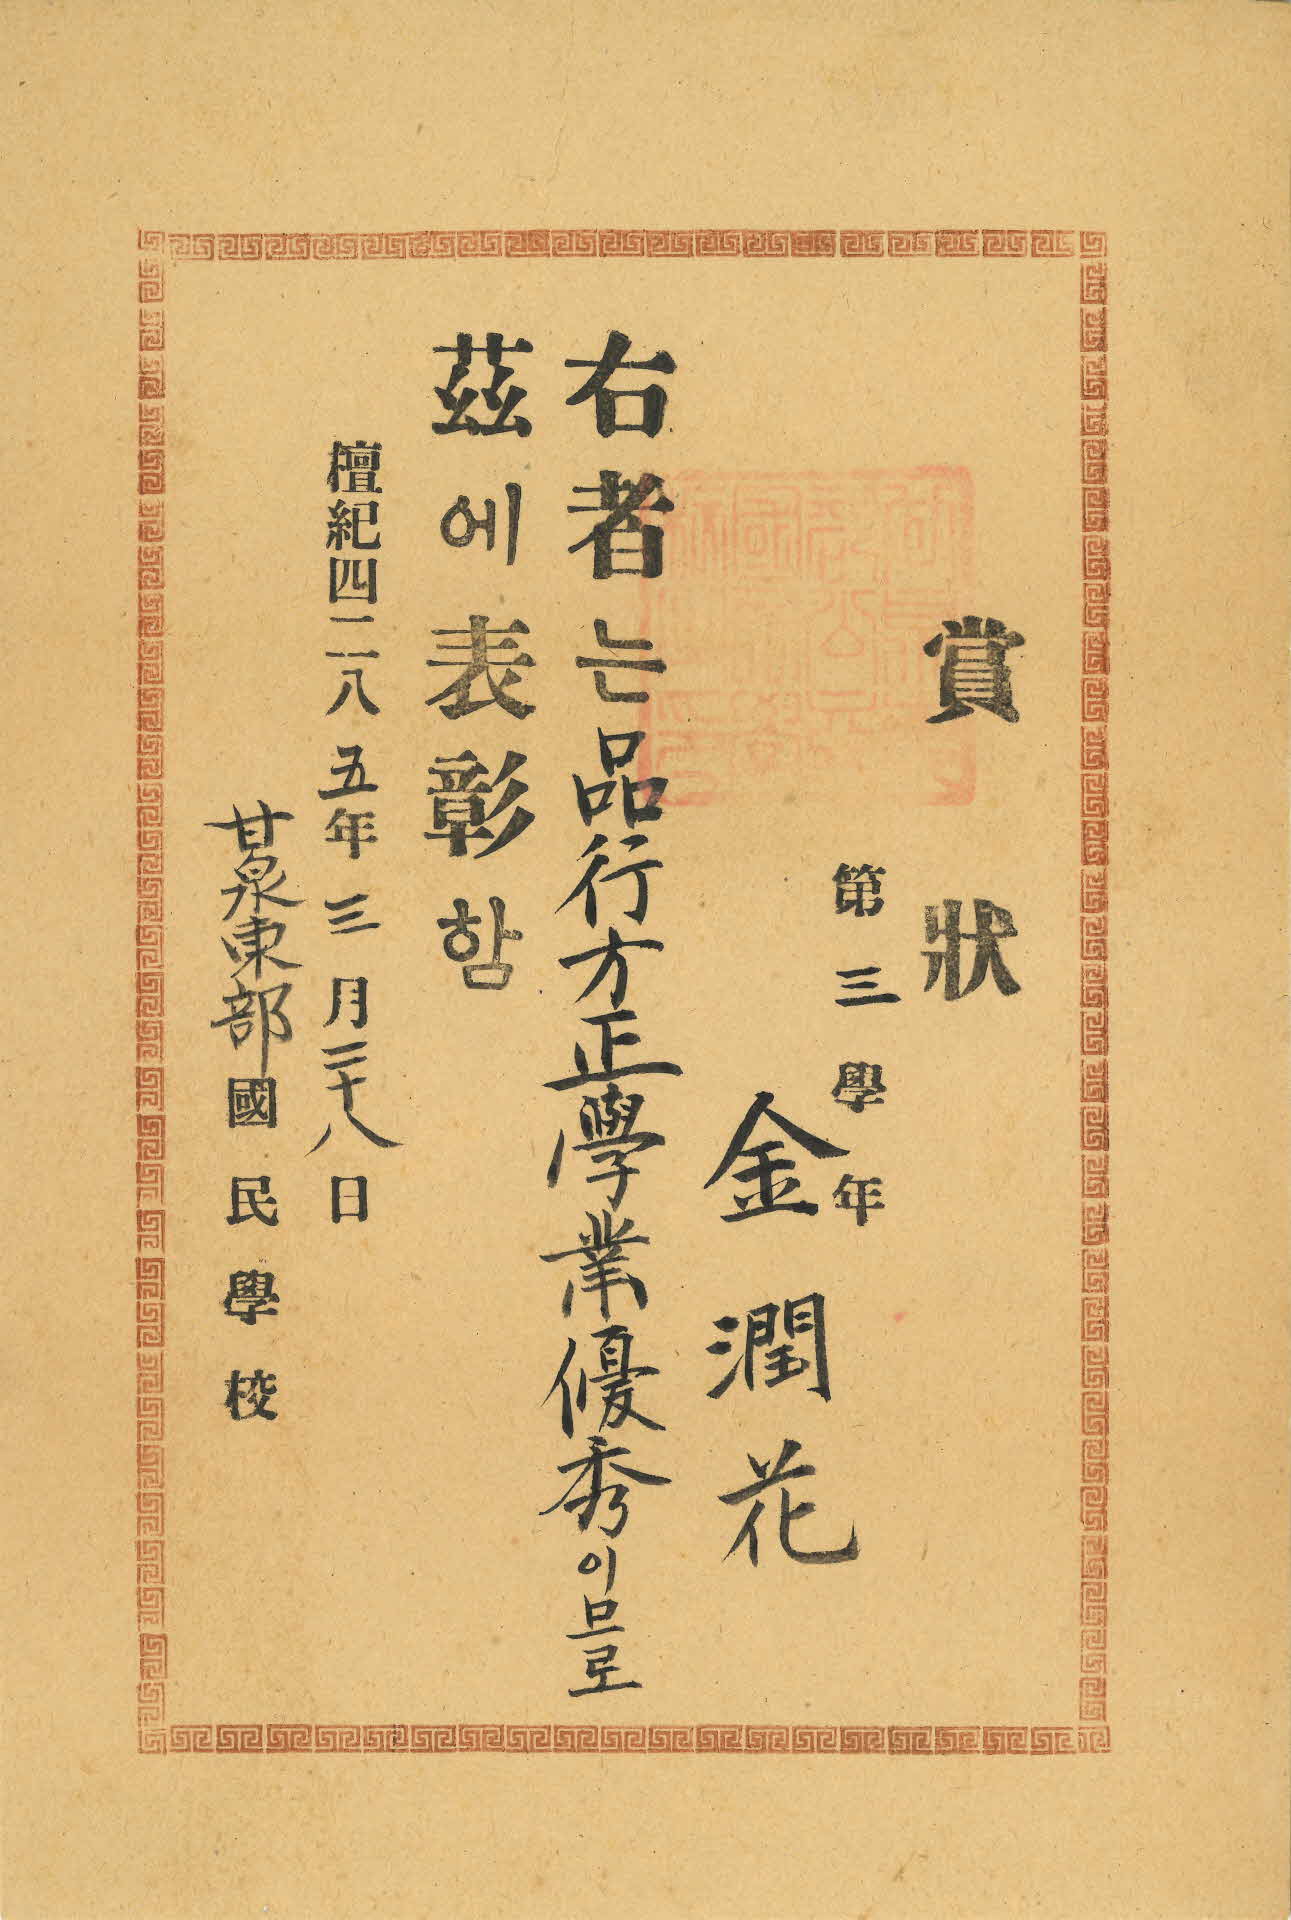 賞狀
第三學年
金潤花
右者는品行方正學業優秀이므로
茲에表彰함
檀紀四二八五年三月二十八日
甘泉東部國民學校